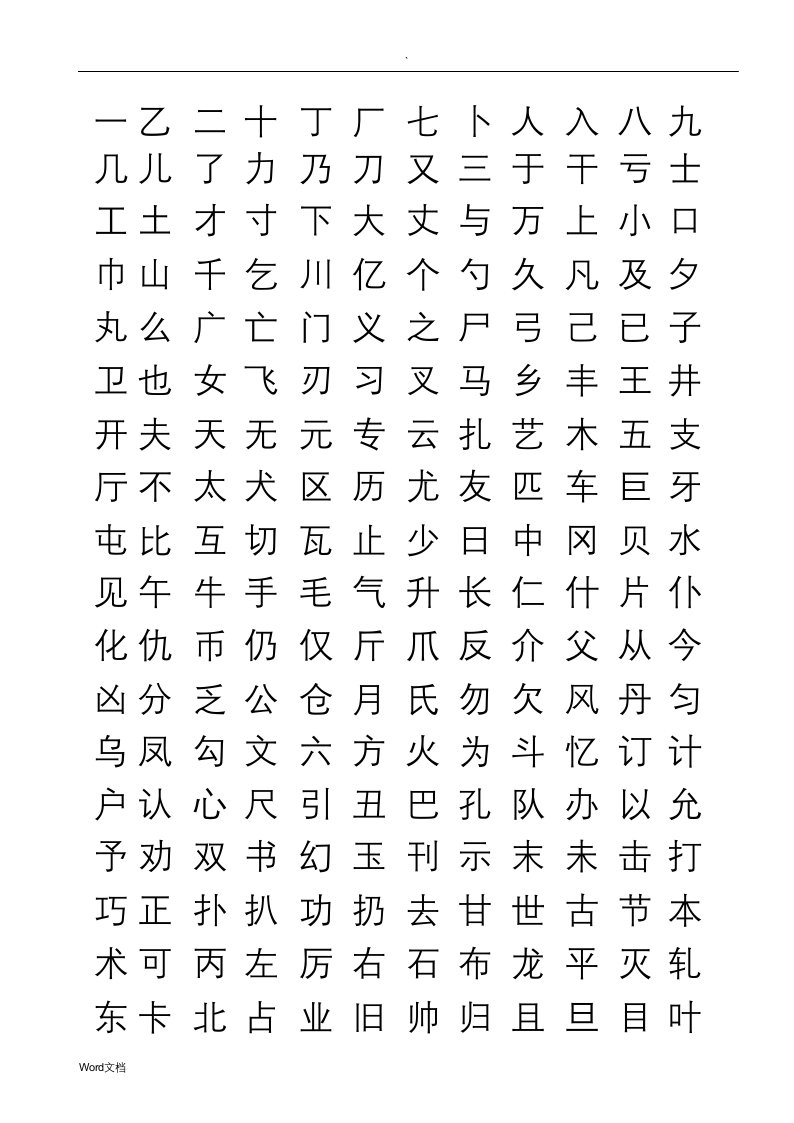 .
一 乙 二 十 丁 厂 七 卜 人 入 八 九
几 儿 了 力 乃 刀 又 三 于 干 亏 士
工 土 才 寸 下 大 丈 与 万 上 小 口
巾 山 千 乞 川 亿 个 勺 久 凡 及 夕
丸 么 广 亡 门 义 之 尸 弓 己 已 子
卫 也 女 飞 刃 习 叉 马 乡 丰 王 井
开 夫 天 无 元 专 云 扎 艺 木 五 支
厅 不 太 犬 区 历 尤 友 匹 车 巨 牙
屯 比 互 切 瓦 止 少 日 中 冈 贝 水
见 午 牛 手 毛 气 升 长 仁 什 片 仆
化 仇 币 仍 仅 斤 爪 反 介 父 从 今
凶 分 乏 公 仓 月 氏 勿 欠 风 丹 匀
乌 凤 勾 文 六 方 火 为 斗 忆 订 计
户 认 心 尺 引 丑 巴 孔 队 办 以 允
予 劝 双 书 幻 玉 刊 示 末 未 击 打
巧 正 扑 扒 功 扔 去 甘 世 古 节 本
术 可 丙 左 厉 右 石 布 龙 平 灭 轧
东 卡 北 占 业 旧 帅 归 且 旦 目 叶
Word文档